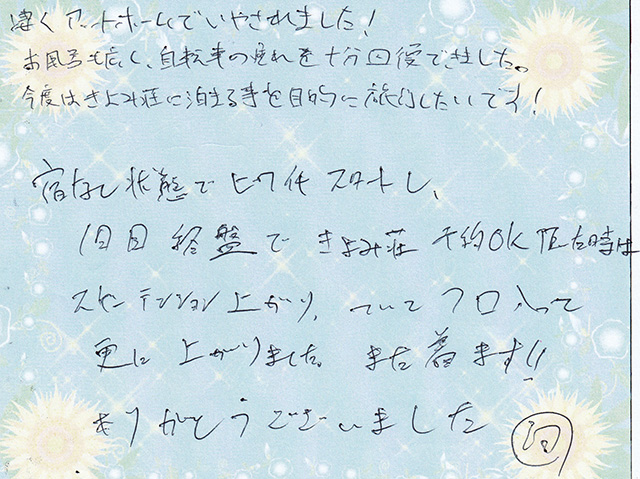 凄くアットホームでいやされました！
お風呂も広く、自転車の疲れを十分回復できました。
今度はきよみ荘に泊まる事を目的に旅行したいです！
宿なし状態で スタートし、
1日目 終盤で きよみ荘 予約OK 時は
テンション上がり、 フロ入って
更に 上がりました。 また 着ます!!
ありがとうございました